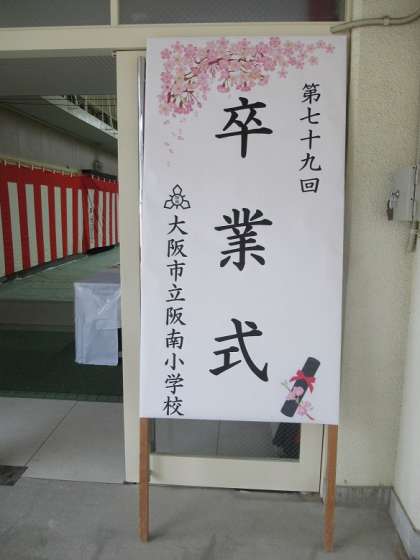 第七十九回
卒業式
大阪市立阪南小学校